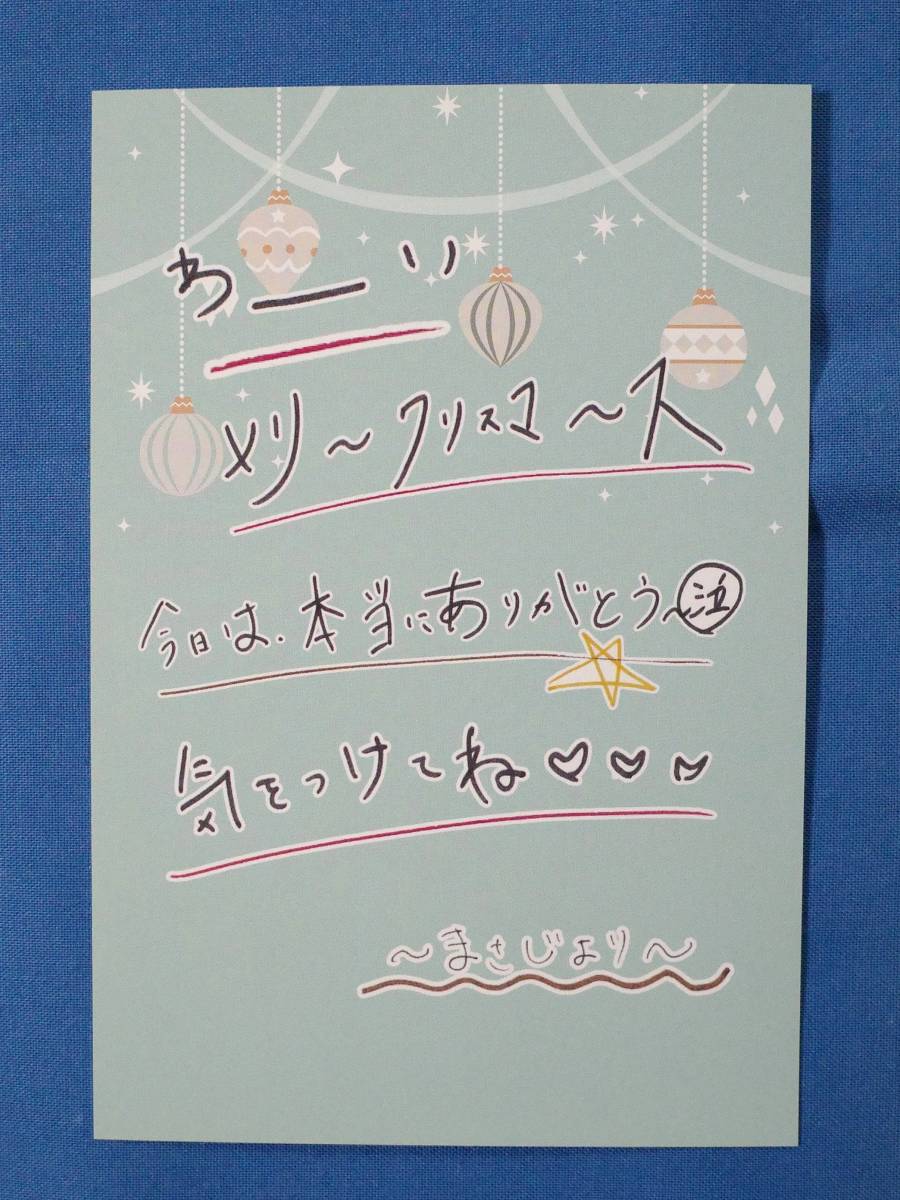 わーい
メリ〜クリスマ〜ス
今日は、本当にありがとう〜泣
気をつけてね♡♡♡
〜まさじより〜